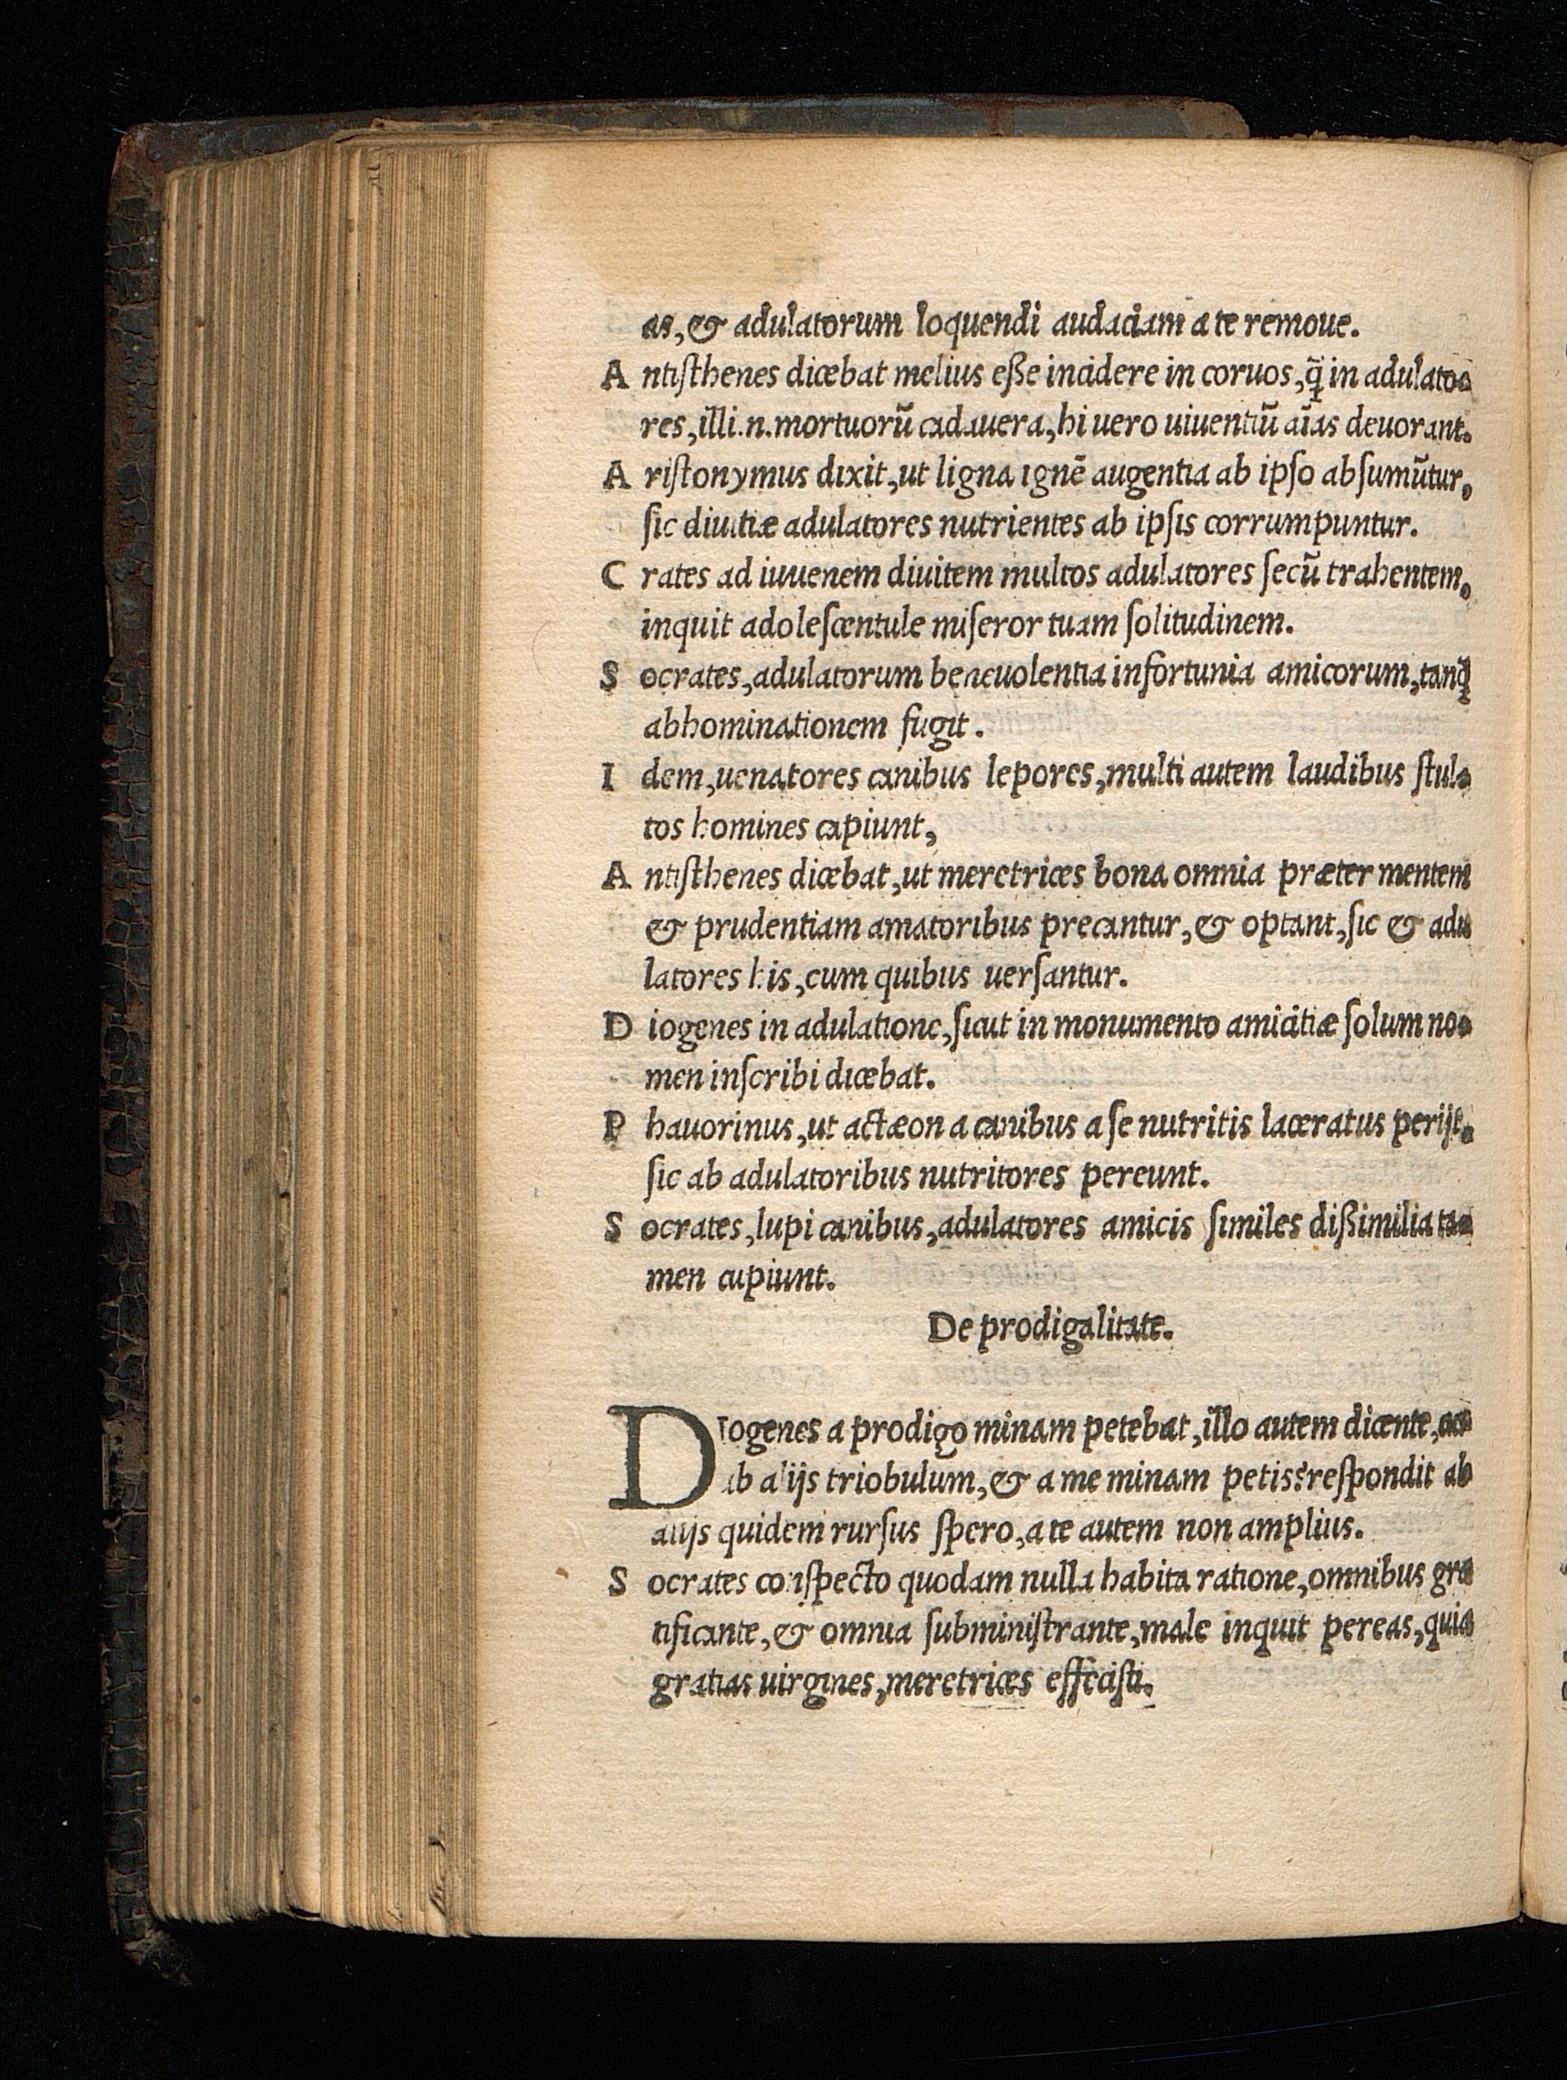 as, & adulatorum loquendi audaciam a te remoue.
A ntiſthenes dicebat melius eße incidere in coruos, q̃ in adulato-
res, illi.n.mortuorũ cadauera, hi uero uiuentiũ aĩas deuorant.
A riſtonymus dixit, ut ligna ignẽ augentia ab ipſo abſumũtur,
ſic diuitiæ adulatores nutrientes ab ipſis corrumpuntur.
C rates ad iuuenem diuitem multos adulatores ſecũ trahentem,
inquit adoleſcentule miſeror tuam ſolitudinem.
S ocrates, adulatorum beneuolentia infortunia amicorum, tanq̃
abhominationem fugit.
I dem, uenatores canibus lepores, multi autem laudibus ſtul-
tos homines capiunt,
A ntiſthenes dicebat, ut meretrices bona omnia præter mentem
& prudentiam amatoribus precantur, & optant, ſic & adu
latores his, cum quibus uerſantur.
D iogenes in adulatione, ſicut in monumento amicitiæ ſolum no-
men inſcribi dicebat.
P hauorinus, ut actæon a canibus a ſe nutritis laceratus perijt,
ſic ab adulatoribus nutritores pereunt.
S ocrates, lupi canibus, adulatores amicis ſimiles dißimilia ta-
men cupiunt.
De prodigalitate.
DIogenes a prodigo minam petebat, illo autem dicente,
ab alijs triobulum, & a me minam petis? reſpondit ab
alijs quidem rurſus ſpero, a te autem non amplius.
S ocrates conſpecto quodam nulla habita ratione, omnibus gra
tificante, & omnia ſubminiſtrante, male inquit pereas, quia
gratias uirgines, meretrices effeciſti.